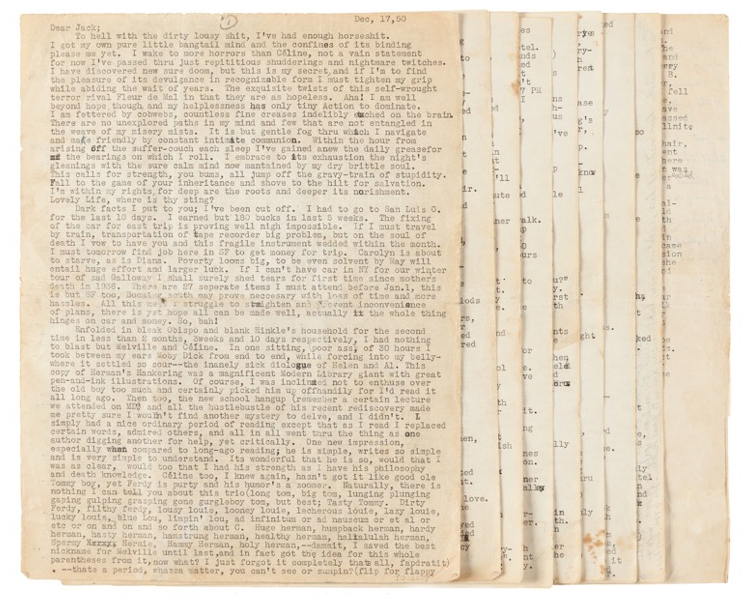 Dec, 17,50
Dear Jack;
To hell with the dirty lousy shit, I've had enough horseshit.
I got my own pure little bangtail mind and the confines of its binding
please me yet. I wake to more horrors than Céline, not a vain statement
for now I've passed thru just repititious shudderings and nightmare twitches.
I have discovered new sure doom, but this is my secret and if I'm to find
the pleasure of its devulgance in recognizable form I must tighten my grip
while abiding the wait of years. The exquisite twists of this self-wrought
terror rival Fleur de Mal in that they are as hopeless. Aha! I am well
beyond hope though and my helplessness has only tiny Action to dominate.
I am fettered by cobwebs, countless fine creases indelibly etched on the brain.
There are no unexplored paths in my mind and few that are not entangled in
the weave of my misery mists. It is but gentle fog thru which I navigate
and make friendly by constant intimate communion. Within the hour from
arising off the suffer-couch each sleep I've gained anew the daily greasefor
the bearings on which I roll. I embrace to its exhaustion the night's
gleanings with the sure calm mind now mantained by my dry brittle soul.
This calls for strength, you bums, all jump off the gravy-train of stupidity.
Fall to the game of your inheritance and shove to the hilt for salvation.
I'm within my rights for deep are the roots and deeper its norishment.
Lovely Life, where is thy sting?
Dark facts I put to you; I've been cut off. I had to go to San Luis O.
for the last 10 days. I earned but 180 bucks in last 5 weeks. The fixing
of the car for east trip is proving well nigh impossible. If I must travel
by train, transportation of tape recorder big problem, but on the soul of
death I vow to have you and this fragile instrument wedded within the month.
I must tomorrow find job here in SF to get money for trip. Carolyn is about
to starve, as is Diana. Poverty looms big, to be even solvent by May will
entail huge effort and larger luck. If I can't have car in NY for our winter
tour of sad Galloway I shall surely shed tears for first time since mothers
death in 1936. There are 27 seperate items I must attend before Jan.1, this
is but SF too, may prove neccesary with loss of time and more
hassles. All this I struggle to straighten and prevent inconvenience
of plans, there is yet hope all can be made well, actually it the whole thing
hinges on car and money. So, bah!
Enfolded in bleak Obispo and blank Hinkle's household for the second
time in less than 2 months, 3weeks and 10 days respectively, I had nothing
to blast but Melville and Céline. In one sitting, poor ass, of 30 hours I
took between my ears Moby Dick from end to end, while forcing into my belly-
where it settled so sour--the inanely sick dialogue of Helen and Al. This
copy of Herman's Hankering was a magnificent Modern Library giant with great
pen-and-ink illustrations. Of course, I was inclined not to enthuse over
the old boy too much and certainly picked him up offhandily for I'd read it
all long ago. Then too, the new school hangup (remember a certain lecture
we attended on HM) and all the hustlebustle of his recent rediscovery made
me pretty sure I wouldn't find another mystery to delve, and I didn't. I
simply had a nice ordinary period of reading except that as I read I replaced
certain words, admired others, and all in all went thru the thing as one
author digging another for help, yet critically. One new impression,
especially when compared to long-ago reading; he is simple, writes so simple
and is very simple to understand. Its wonderful that he is so, would that I
was as clear, would too that I had his strength as I have his philosophy
and death knowledge. Céline too, I knew again, hasn't got it like good ole
Tommy boy, yet Ferdy is purty and his humor's a zoomer. Naturally, there is
nothing I can tell you about this trio(long tom, big tom, lunging plunging
gaping gulping grasping gone gurgleboy tom, but best; Tasty Tommy. Dirty
Ferdy, filthy ferdy, lousy louis, looney louie, lecherous louie, lazy louie,
lucky louis, blue lou, limpin' lou, ad infinitum or ad nauseum or et al or
etc or on and on and so forth about C. Huge herman, humpback herman, hardy
herman, hasty herman, hamstrung herman, healthy herman, herman,
Spermy Hermie, Hammy Herman, holy herman,--dammit, I saved the best
nickname for Melville until last,and in fact got the idea for this whole
parentheses from it,now what? I just forgot it completely that all, fapdratit)
. --thats a period, whazza matter, you can't see or sumpin?(flip for flappy